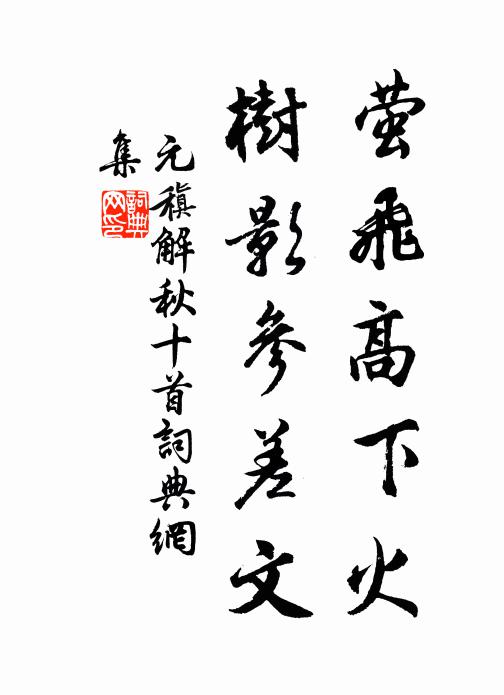 萤飛高下火
樹影參差文
元稹解秋十首詞典網
集
詞典
网印